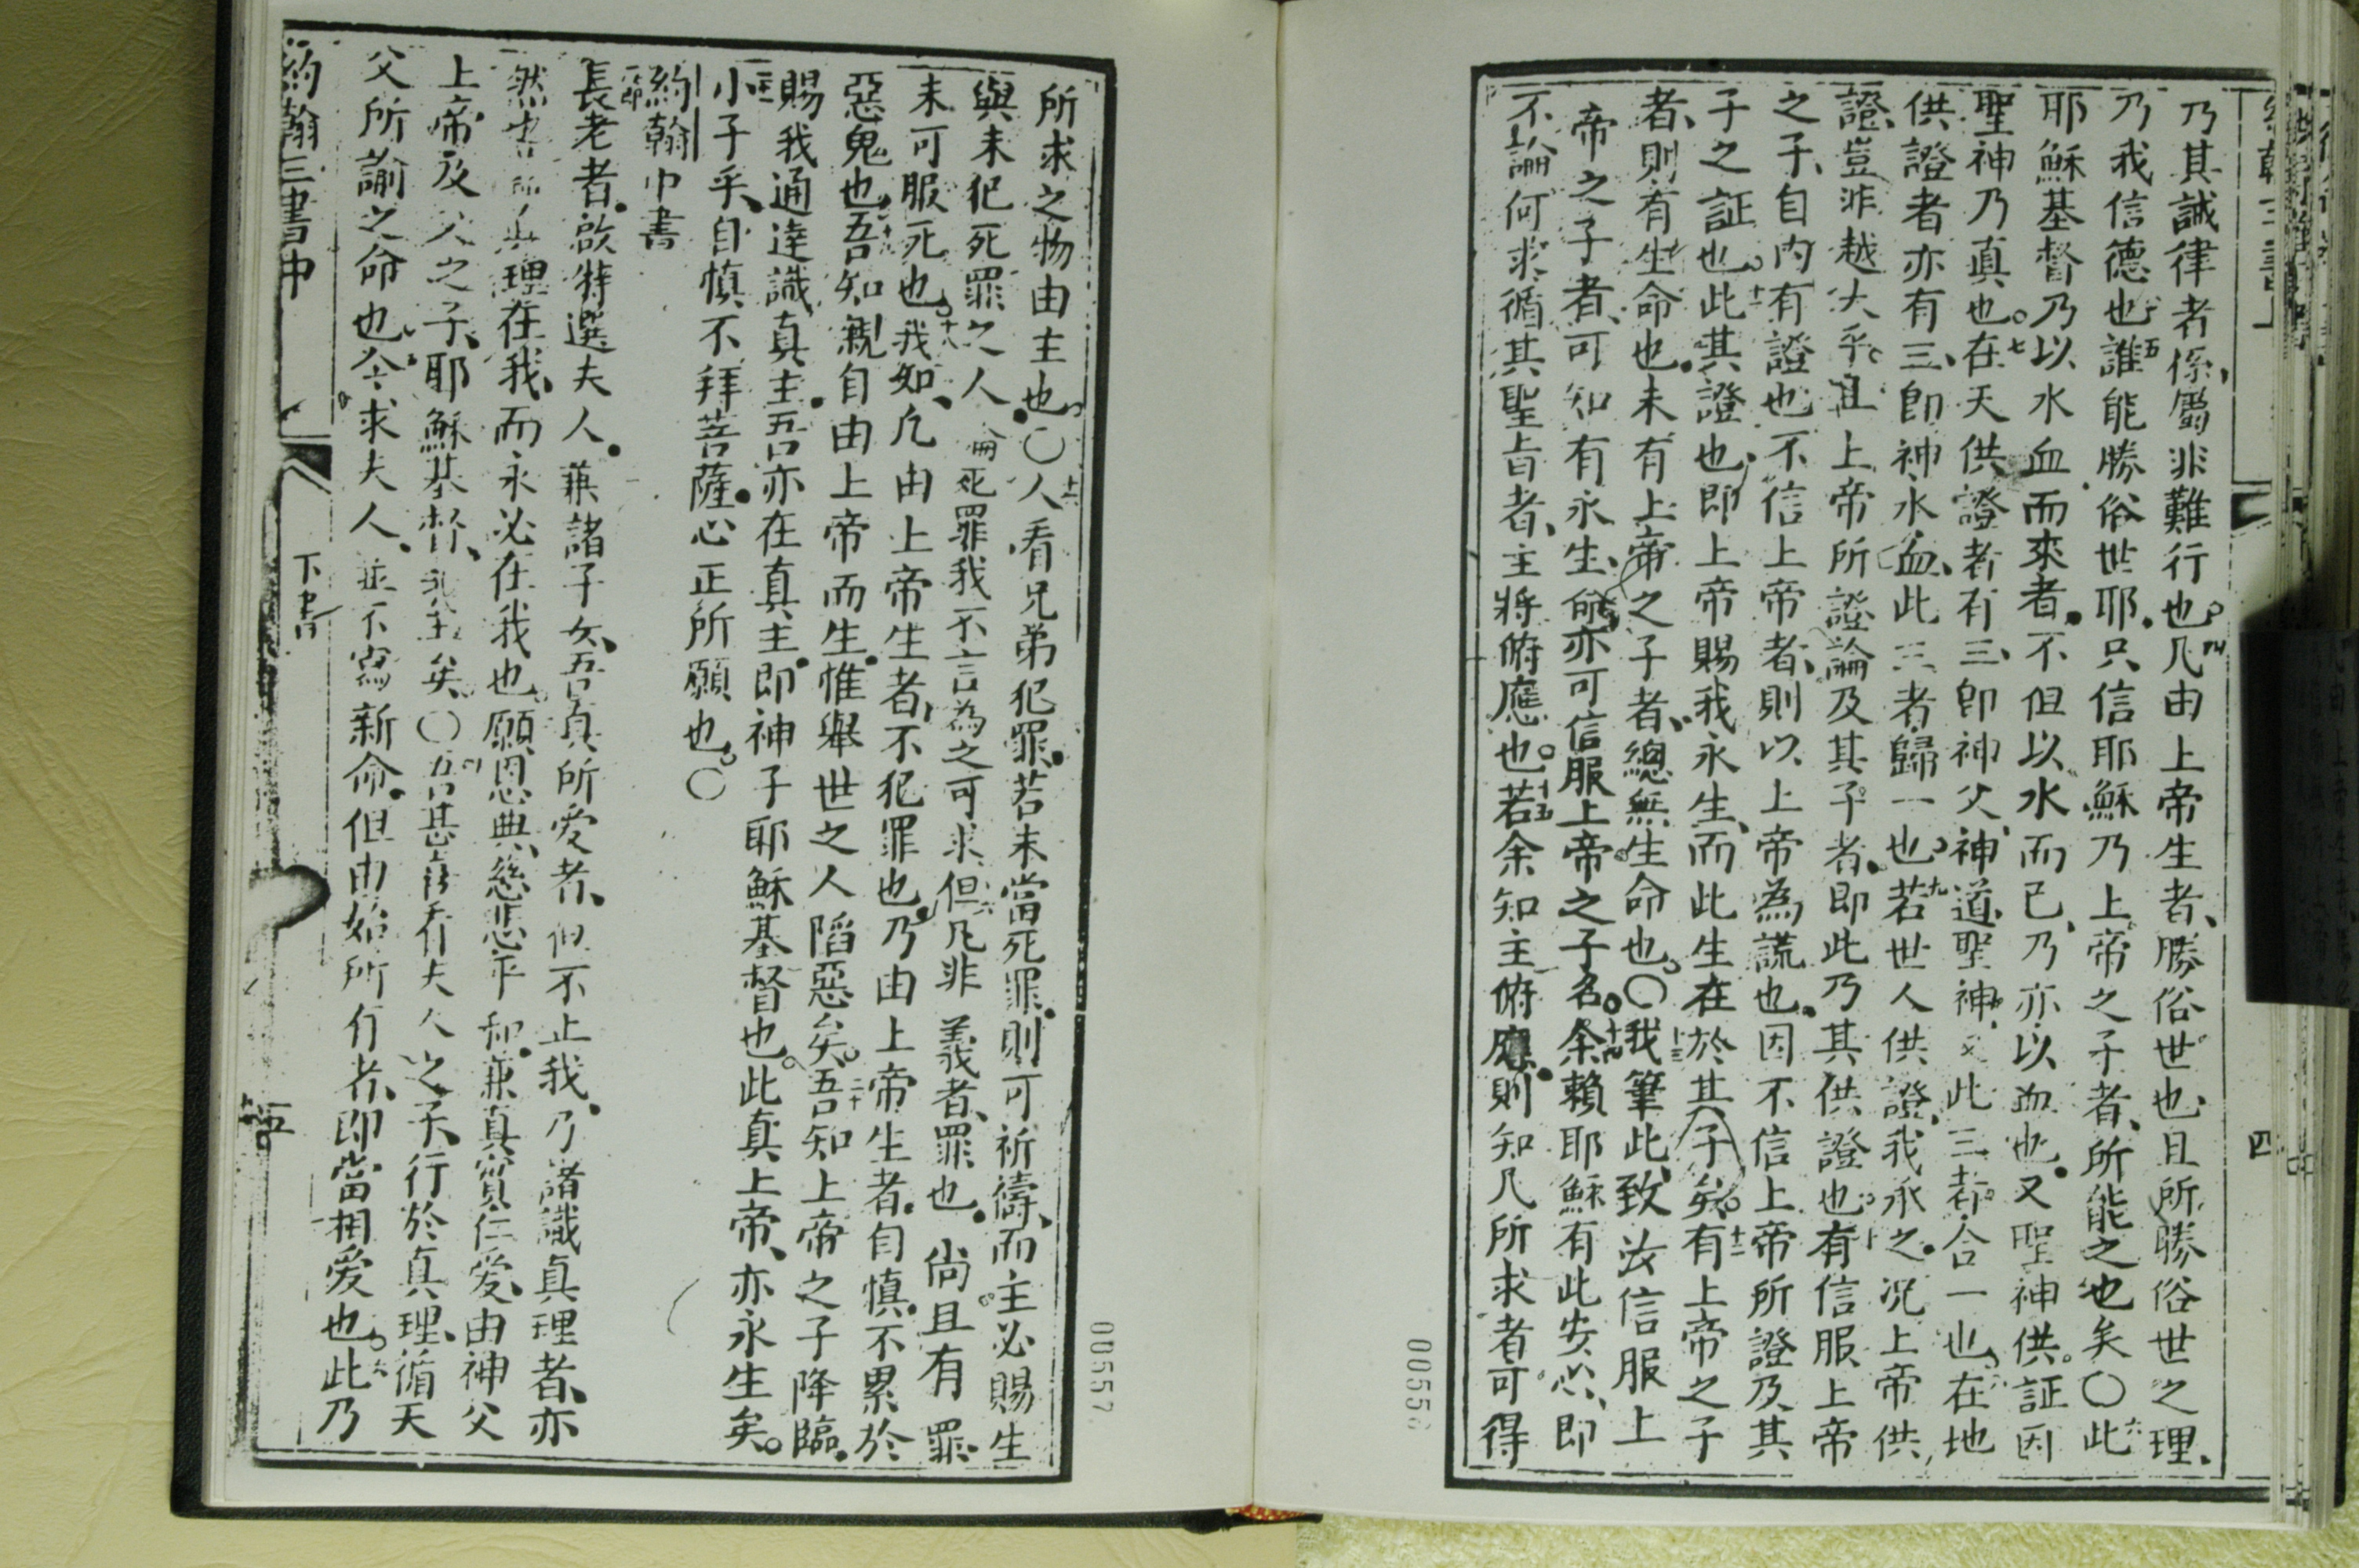 乃其誡律者係屬非難行也凡由上帝生者勝俗世也且所勝俗世之理
乃我信德也五誰能勝俗世耶只信耶穌乃上帝之子者所能之也矣〇六此
耶穌基督乃以水血而來者不但以水而已乃亦以血也又聖神供証因
聖神乃真也七在天供證者有三即神父神道聖神此三者合一也在地
供證者亦有三即神水血此三者歸一也九若世人供證我承之况上帝供
證豈非越大乎且上帝所證論及其子者即此乃其供證也十有信服上帝
之子自內有證也不信上帝者則以上帝為謊也因不信上帝所證及其
子之証也十一此其證也即上帝賜我永生而此生在於其子矣十二有上帝之子
者則有生命也未有上帝之子者總無生命也〇十三我筆此致汝信服上
帝之子者可知有永生亦可信服上帝之子名十四余賴耶穌有此安心即
不論何求循其聖旨者主將俯應也十五若余知主俯應則知凡所求者可得
四
00556
所求之物由主也〇十六人看兄弟犯罪若未當死罪則可祈禱而主必賜生
與未犯死罪之人死罪我不言為之可求但凡非義者罪也尚且有罪
未可服死也十八我知凡由上帝生者不犯罪也乃由上帝生者自慎不累於
惡鬼也十九吾知親自由上帝而生惟舉世之人陷惡矣二十吾知上帝之子降臨
賜我通達識真主吾亦在真主即神子耶穌基督也此真上帝亦永生矣
小子乎自慎不拜菩薩心正所願也〇
約翰中書
長老者啟特選夫人兼諸子女吾真所愛者但不止我乃諸識真理者亦
然也理在我而永必在我也願恩典慈悲平和兼真實仁愛由神父
上帝及父之子耶穌基督我主矣〇吾甚喜看夫人之子行於真理循天
父所諭之命也今求夫人並不寫新命但由始所有者即當相愛也六此乃
約翰三書中
下書
五
00557